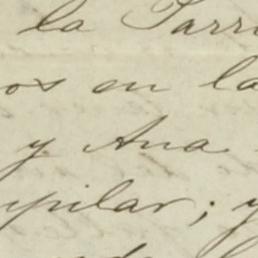 la Parr
os en la
y Ana
upilar; y